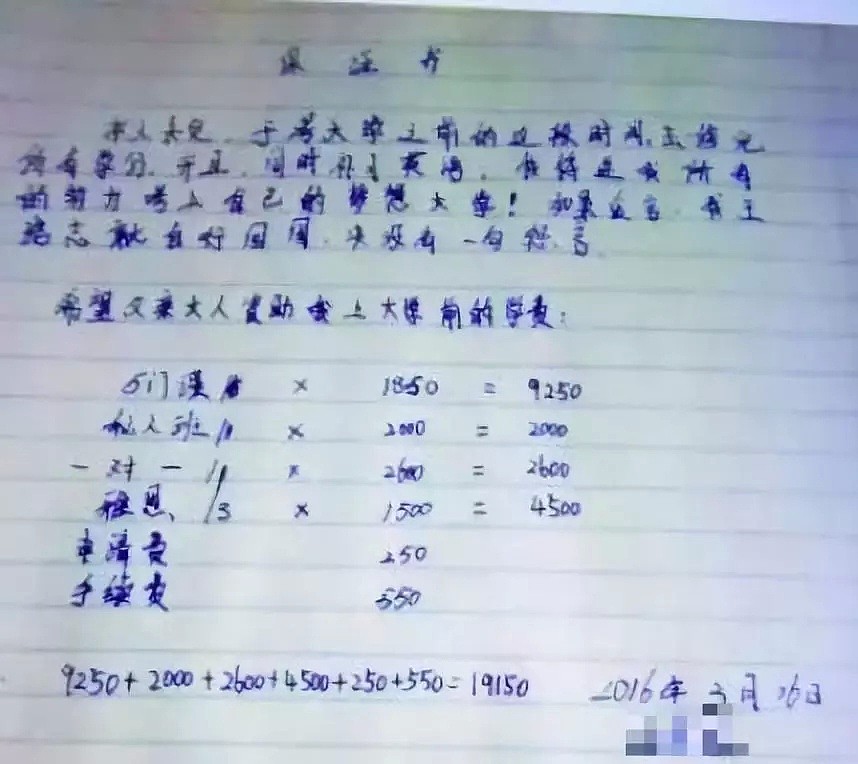 保 证 书
本人承兑, 于考大学之前的这段时间, 去修完
所有学分, 并且, 同时补习英语, 最终
的努力考上自己的梦想大学! 如果食言, 我王
志就自行回国, 决没有一句怨言
希望父亲大人资助我上大学前的学费:
5门课 × 1850 = 9250
私人班/1 × 2000 = 2000
一对一/1 × 2600 = 2600
雅思、/3 × 1500 = 4500
申请费 250
手续费 550
9250+2000+2600+4500+250+550=19150 2016年3月16日